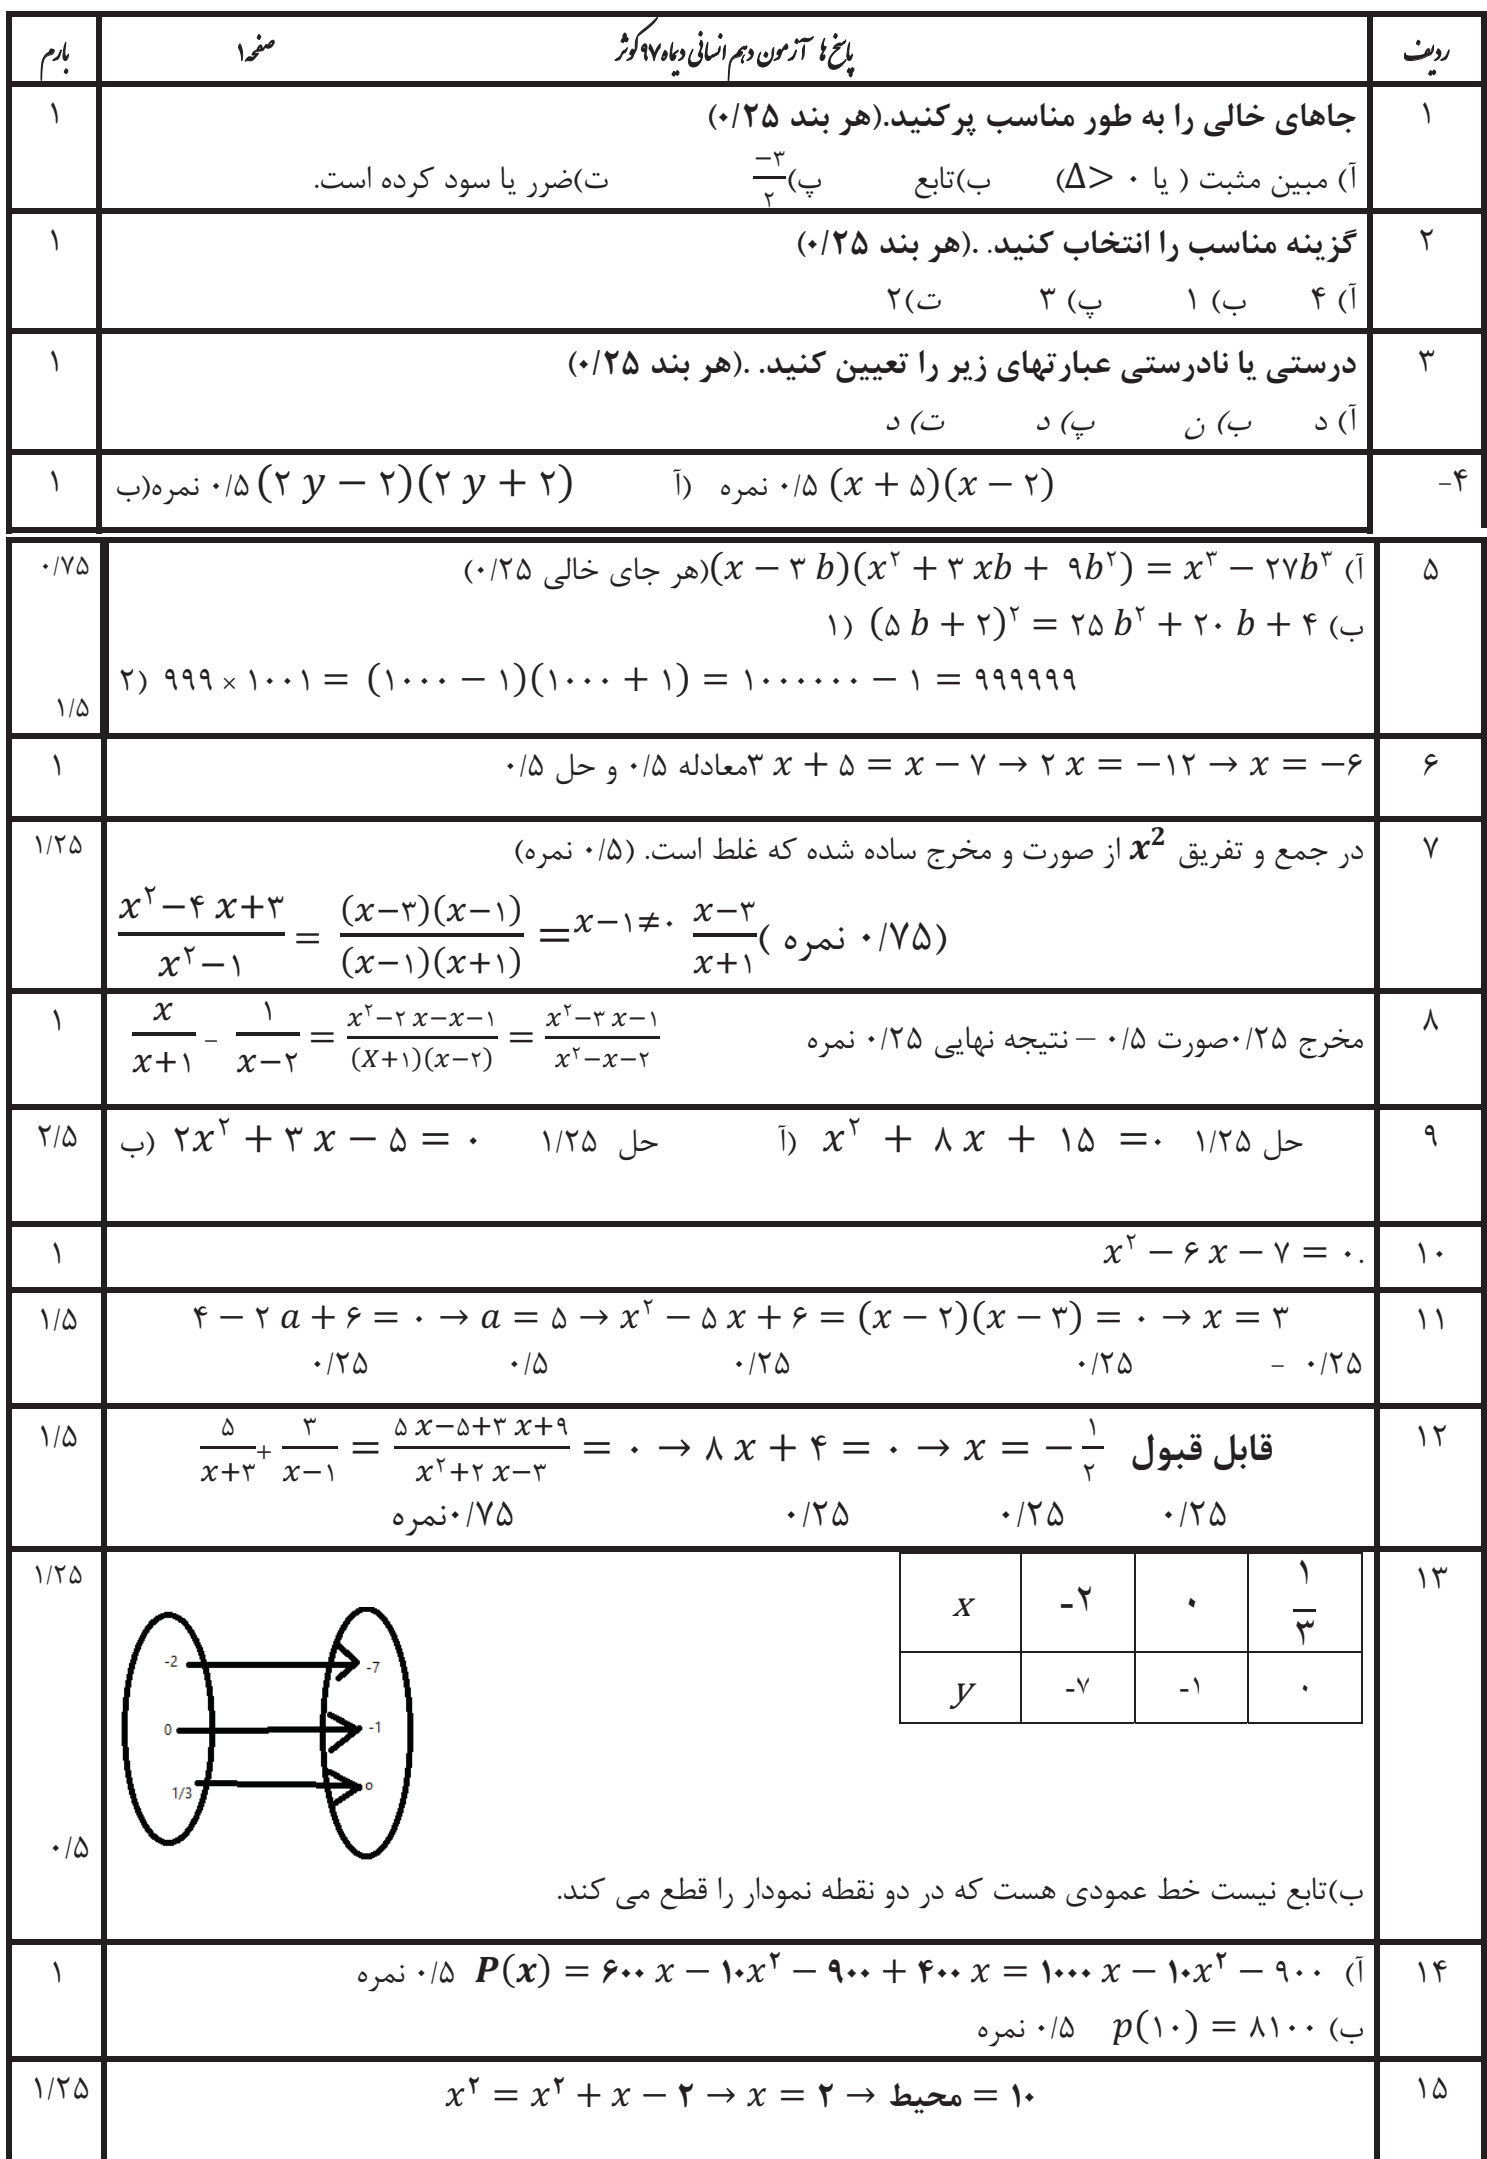 ردیف پاسخ ها آزمون دهم انسانی دیماه ۹۷ کوثر صفحه ۱ بارم
۱ جاهای خالی را به طور مناسب پرکنید.(هر بند ۰/۲۵) ۱
آ) مبین مثبت ( یا ۰ <Δ) ب)تابع پ)−۳/۲ ت)ضرر یا سود کرده است.
۲ گزینه مناسب را انتخاب کنید. .(هر بند ۰/۲۵) ۱
آ) ۴ ب) ۱ پ) ۳ ت)۲
۳ درستی یا نادرستی عبارتهای زیر را تعیین کنید. .(هر بند ۰/۲۵) ۱
آ) د ب) ن پ) د ت) د
۴- آ) (x + ۵)(x − ۲) ۰/۵ نمره ب) (۲ y − ۲)(۲ y + ۲) ۰/۵ نمره ۱
۵ آ) (x − ۳ b)(x² + ۳ xb + ۹b²) = x³ − ۲۷b³ (هر جای خالی ۰/۲۵) ۰/۷۵
ب) ۱) (۵ b + ۲)² = ۲۵ b² + ۲۰ b + ۴
۲) ۹۹۹ × ۱۰۰۱ = (۱۰۰۰ − ۱)(۱۰۰۰ + ۱) = ۱۰۰۰۰۰۰ − ۱ = ۹۹۹۹۹۹ ۱/۵
۶ ۳ x + ۵ = x − ۷ → ۲ x = −۱۲ → x = −۶ معادله ۰/۵ و حل ۰/۵ ۱
۷ در جمع و تفریق x² از صورت و مخرج ساده شده که غلط است. (۰/۵ نمره) ۱/۲۵
(x²−۴ x+۳)/(x²−۱) = (x−۳)(x−۱)/(x−۱)(x+۱) =^(x−۱≠۰) (x−۳)/(x+۱) (۰/۷۵ نمره )
۸ x/(x+۱) - ۱/(x−۲) = (x²−۲ x−x−۱)/((X+۱)(x−۲)) = (x²−۳ x−۱)/(x²−x−۲) مخرج ۰/۲۵صورت ۰/۵ – نتیجه نهایی ۰/۲۵ نمره ۱
۹ آ) x² + ۸ x + ۱۵ =۰ حل ۱/۲۵ ب) ۲x² + ۳ x − ۵ = ۰ حل ۱/۲۵ ۲/۵
۱۰ x² − ۶ x − ۷ = ۰. ۱
۱۱ ۴ − ۲ a + ۶ = ۰ → a = ۵ → x² − ۵ x + ۶ = (x − ۲)(x − ۳) = ۰ → x = ۳ ۱/۵
۰/۲۵ ۰/۵ ۰/۲۵ ۰/۲۵ – ۰/۲۵
۱۲ ۵/(x+۳) + ۳/(x−۱) = (۵ x−۵+۳ x+۹)/(x²+۲ x−۳) = ۰ → ۸ x + ۴ = ۰ → x = −۱/۲ قابل قبول ۱/۵
۰/۷۵نمره ۰/۲۵ ۰/۲۵ ۰/۲۵
۱۳ x -۲ ۰ ۱/۳ ۱/۲۵
y -۷ -۱ ۰
-2 -7
0 -1
1/3 o
۰/۵
ب)تابع نیست خط عمودی هست که در دو نقطه نمودار را قطع می کند.
۱۴ آ) P(x) = ۶۰۰ x − ۱۰x² − ۹۰۰ + ۴۰۰ x = ۱۰۰۰ x − ۱۰x² − ۹۰۰ ۰/۵ نمره ۱
ب) p(۱۰) = ۸۱۰۰ ۰/۵ نمره
۱۵ x² = x² + x − ۲ → x = ۲ → محیط = ۱۰ ۱/۲۵